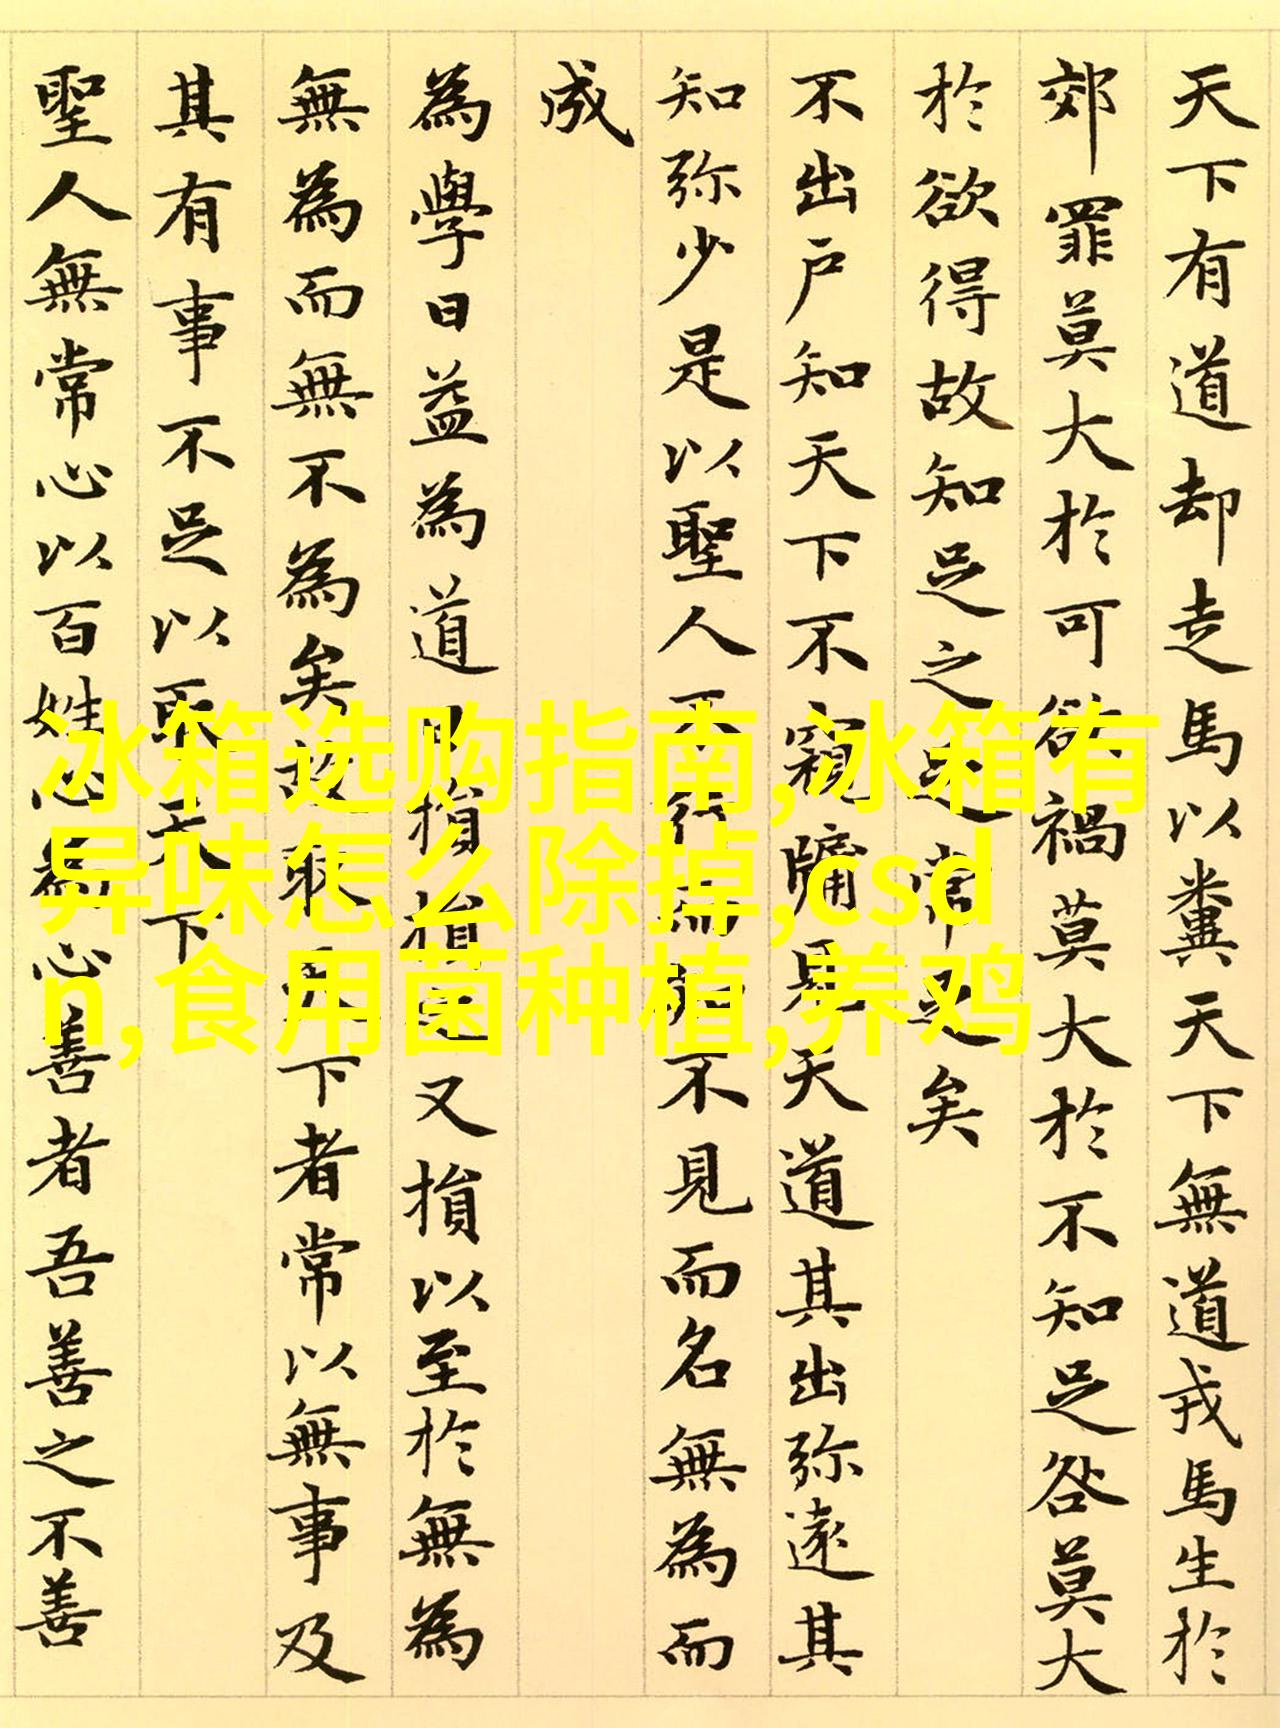 天下有道却走馬以糞天下無道戎馬生於
郊罪莫大於可欲禍莫大於不知足咎莫大
於欲得故知足之足常足矣
不出户知天下不窺牖見天道其出弥遠其
知弥少是以聖人不行而知不見而名無為而
成
為學日益為道日損損之又損以至於無為
無為而無不為矣故取天下者常以無事及
其有事不足以取天下
聖人無常心以百姓心為心善者吾善之不善
冰箱选购指南,冰箱有
异味怎么除掉,csd
n,食用菌种植,养鸡